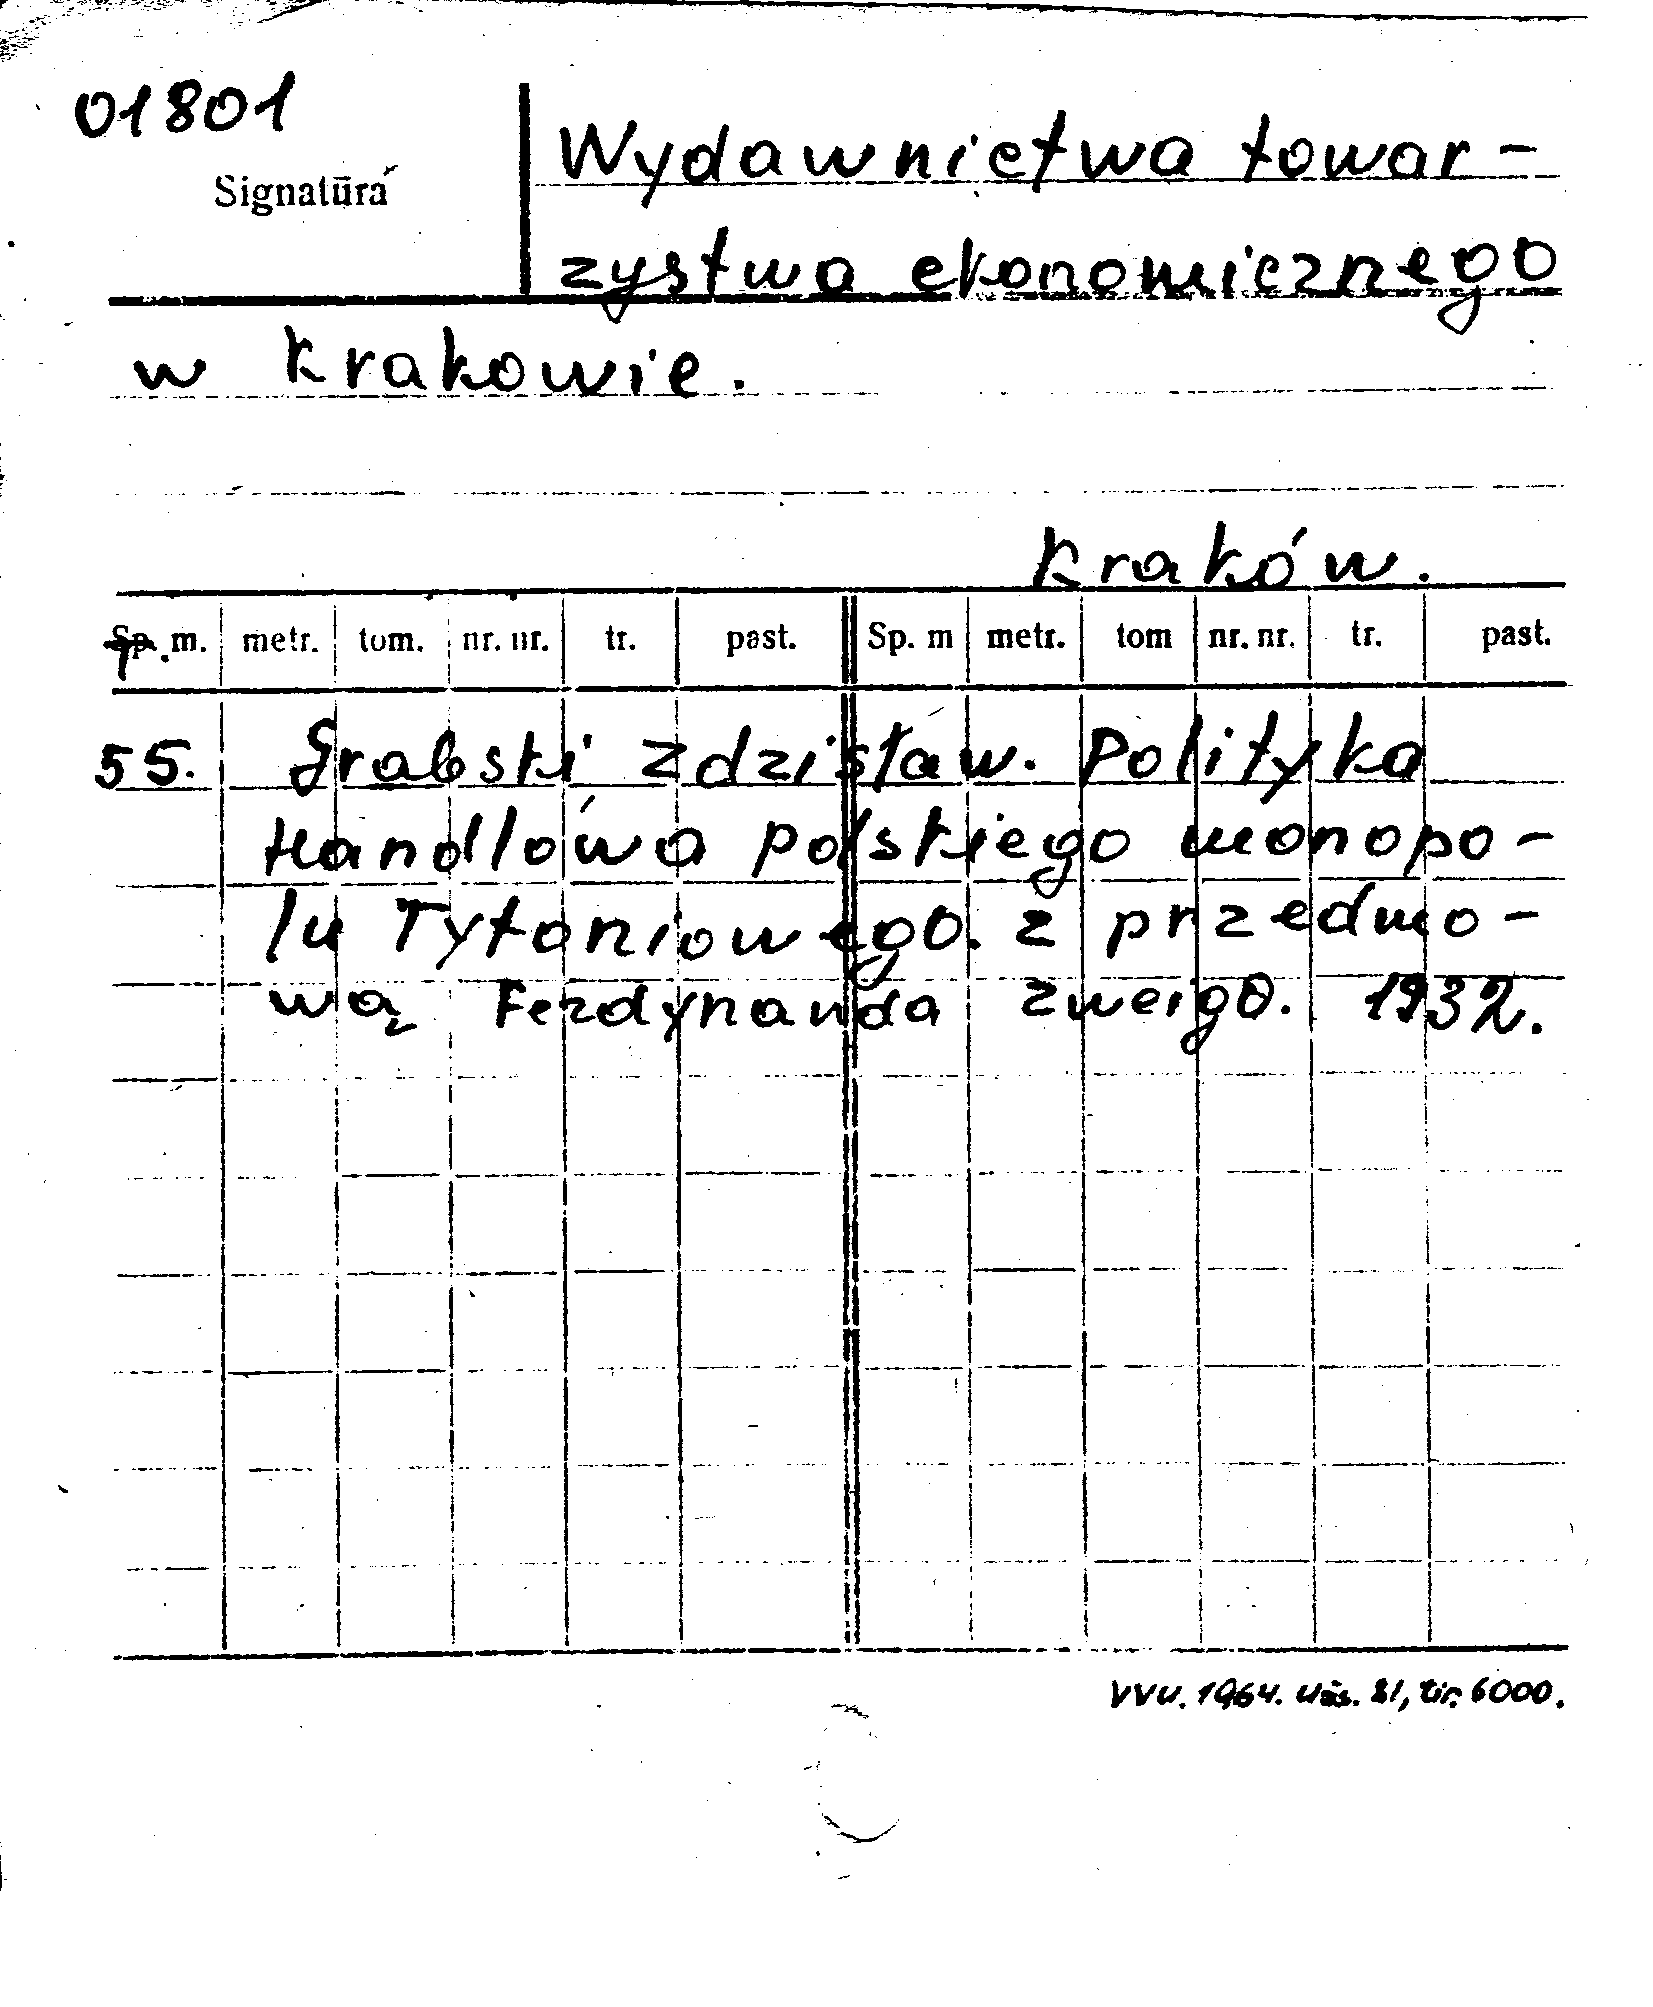 01801
Signatūra
Wydawnictwa towar-
zystwa ekonomicznego
w Krakowie.
Kraków.
T. m. metr. tom. nr. nr. tr. past. Sp. m metr. tom nr. nr. tr. past.
55. Grabski Zdzisław. Polityka
Handlowa polskiego monopo-
lu Tytoniowego. z przedmo-
wą Ferdynanda Zweigo. 1932.
VVU. 1964. Užs. 81, tir. 6000.